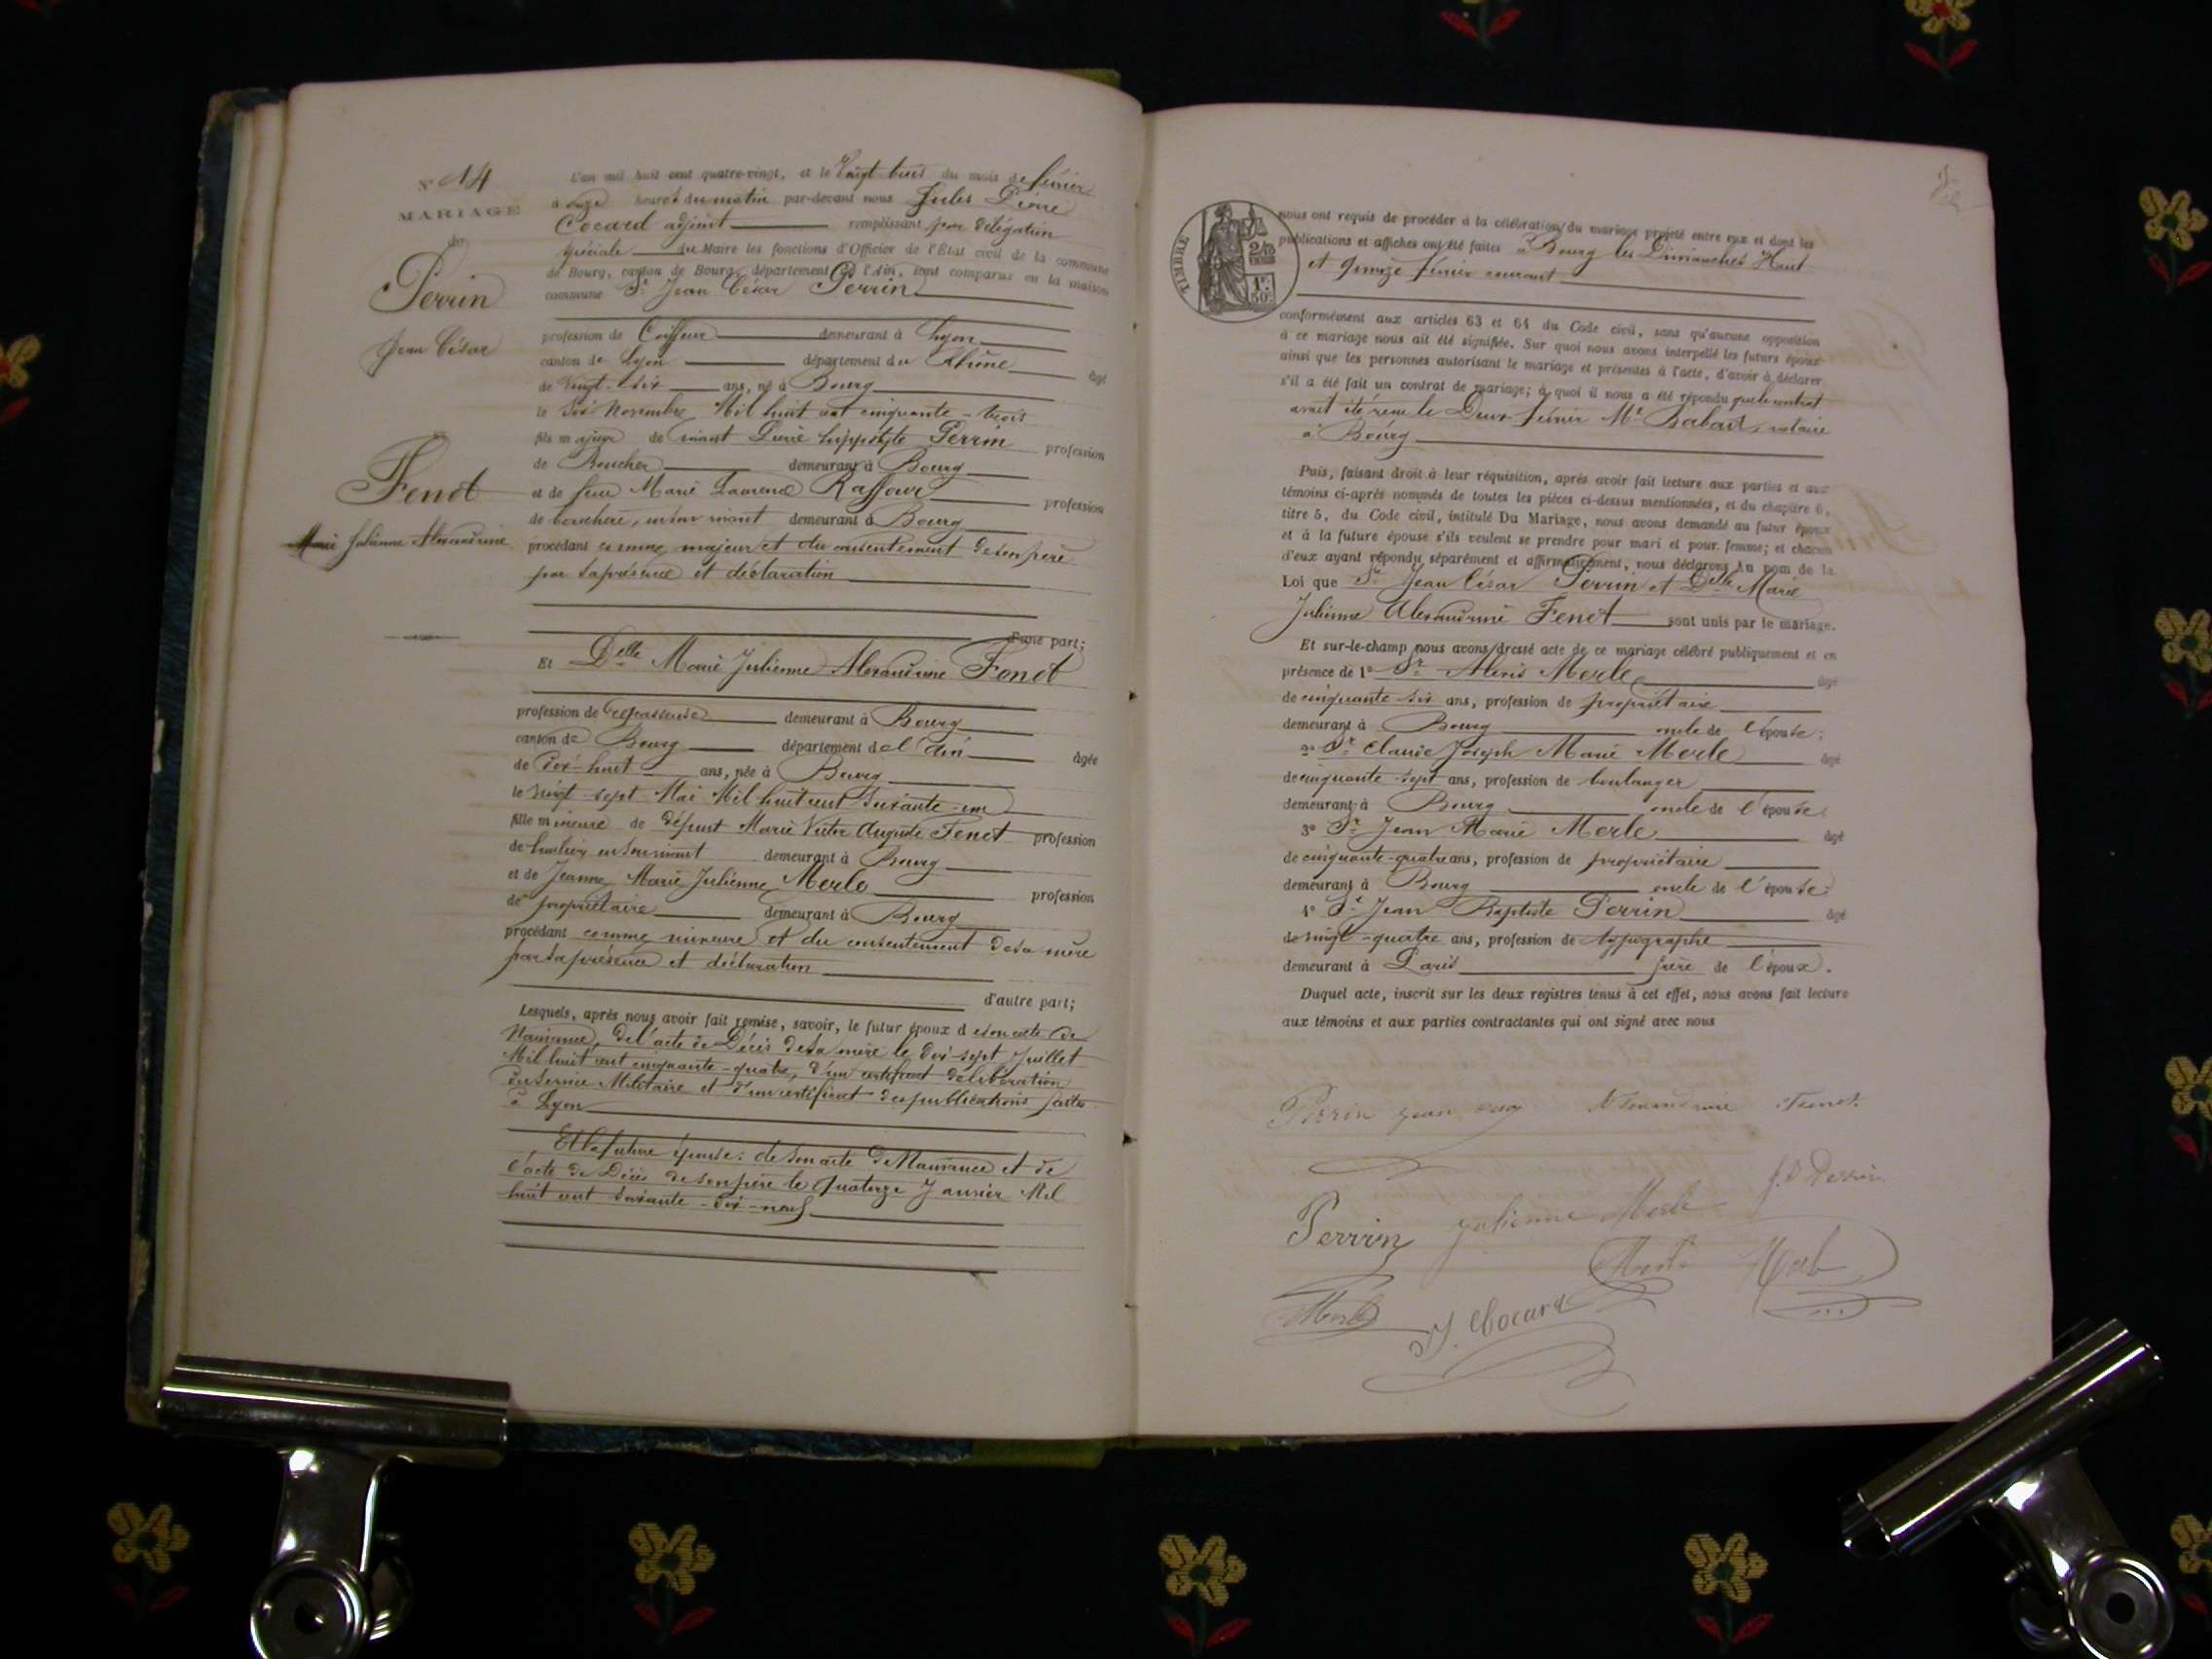 N° 14
MARIAGE
de
Perrin
Jean César
et
Fenet
Marie Julienne Alexandrine
L'an mil huit cent quatre-vingt, et le Vingt trois du mois de février
à onze heures du matin par-devant nous Jules Pierre
Cocard adjoint remplissant par délégation
spéciale du Maire les fonctions d'Officier de l'Etat civil de la commune
de Bourg, canton de Bourg, département de l'Ain, sont comparus en la maison
commune Sr Jean César Perrin
profession de Coiffeur demeurant à Lyon
canton de Lyon département du Rhône âgé
de vingt-six ans, né à Bourg
le dix Novembre Mil huit cent cinquante-trois
fils majeur de vivant Pierre hippolyte Perrin profession
de Boucher demeurant à Bourg
et de feue Marie Laurence Raffour profession
de bouchère, en son vivant demeurant à Bourg
procédant comme majeur et du consentement de son père
par sa présence et déclaration
d'une part;
Et Delle Marie Julienne Alexandrine Fenet
profession de repasseuse demeurant à Bourg
canton de Bourg département de l'Ain âgée
de dix-huit ans, née à Bourg
le vingt-sept Mai Mil huit cent soixante-un
fille mineure de défunt Marie Victor Auguste Fenet profession
de huilier en son vivant demeurant à Bourg
et de Jeanne Marie Julienne Merle profession
de propriétaire demeurant à Bourg
procédant comme mineure et du consentement de sa mère
par sa présence et déclaration
d'autre part;
Lesquels, après nous avoir fait remise, savoir, le futur époux de son acte de
Naissance, de l'acte de Décès de sa mère le dix-sept Juillet
Mil huit cent cinquante-quatre, d'un certificat de libération
du service Militaire et d'un certificat des publications faites
à Lyon
Et la future épouse: de son acte de Naissance et de
l'acte de Décès de son père le quatorze Janvier Mil
huit cent soixante-dix-neuf
TIMBRE
1F.
50c
nous ont requis de procéder à la célébration du mariage projeté entre eux et dont les
publications et affiches ont été faites à Bourg les Dimanches Huit
et quinze février courant
conformément aux articles 63 et 64 du Code civil, sans qu'aucune opposition
à ce mariage nous ait été signifiée. Sur quoi nous avons interpellé les futurs époux
ainsi que les personnes autorisant le mariage et présentes à l'acte, d'avoir à déclarer
s'il a été fait un contrat de mariage; à quoi il nous a été répondu que le contrat
avait été reçu le Deux février Me notaire
à Bourg
Puis, faisant droit à leur réquisition, après avoir fait lecture aux parties et aux
témoins ci-après nommés de toutes les pièces ci-dessus mentionnées, et du chapitre 6,
titre 5, du Code civil, intitulé Du Mariage, nous avons demandé au futur époux
et à la future épouse s'ils veulent se prendre pour mari et pour femme; et chacun
d'eux ayant répondu séparément et affirmativement, nous déclarons Au nom de la
Loi que Sr Jean César Perrin et Delle Marie
Julienne Alexandrine Fenet sont unis par le mariage.
Et sur-le-champ nous avons dressé acte de ce mariage célébré publiquement et en
présence de 1° Sr Alexis Merle âgé
de cinquante-six ans, profession de propriétaire
demeurant à Bourg oncle de l'épouse;
2° Sr Claude Joseph Marie Merle âgé
de cinquante-sept ans, profession de boulanger
demeurant à Bourg oncle de l'épouse
3° Sr Jean Marie Merle âgé
de cinquante-quatre ans, profession de propriétaire
demeurant à Bourg oncle de l'épouse
4° Sr Jean Baptiste Perrin âgé
de vingt-quatre ans, profession de typographe
demeurant à Paris frère de l'époux.
Duquel acte, inscrit sur les deux registres tenus à cet effet, nous avons fait lecture
aux témoins et aux parties contractantes qui ont signé avec nous
Perrin jean Alexandrine Fenet
J.B Perrin
Perrin Julienne Merle
Merle Merle
Merle J. Cocard